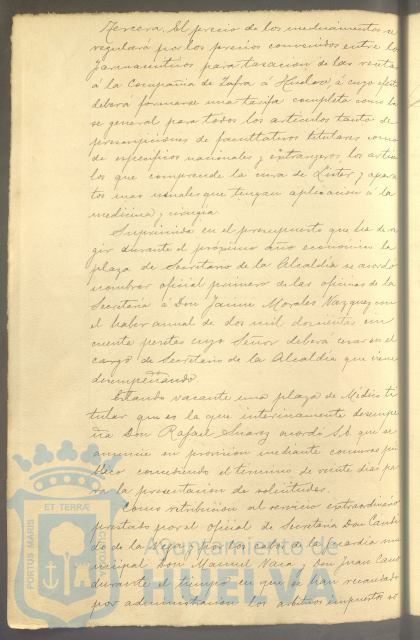 Tercera. El precio de los medicamentos se
regulará por los precios convenidos entre los
farmaceuticos para tasacion de las recetas
á la Compañia de Zafra á Huelva, á cuyo efecto
deberá formarse una tarifa completa como ba
se general para todos los articulos tanto de
prescripciones de facultativos titulares como
de especificos nacionales y extranjeros, los articu
los que comprende la cura de Lister y apara
tos mas usuales que tengan aplicacion á la
medicina y cirugia.
Suprimida en el presupuesto que ha de re
gir durante el próximo año economico la
plaza de Secretario de la Alcaldia se acordó
nombrar oficial primero de las oficinas de la
Secretaria á Don Jaime Morales Vazquez con
el haber anual de dos mil doscientas cin
cuenta pesetas cuyo Señor deberá cesar en el
cargo de Secretario de la Alcaldia que viene
desempeñando.
Estando vacante una plaza de Médico ti
tular que es la que interinamente desempe
ña Don Rafael Suarez acordó S.E. que se
anuncie su provision mediante concurso pú
blico concediendo el término de veinte dias pa
ra la presentacion de solicitudes.
Como retribucion al servicio extraordinario
prestado por el oficial de Secretaria Don Candi
do de la y por los cabos de la guardia mu
nicipal Don Manuel Vaca y Don Juan Cano
durante el tiempo en que se han recaudado
por administracion los arbitrios impuestos so
PORTUS MARIS ET TERRÆ CUSTODIA
Ayuntamiento de
HUELVA